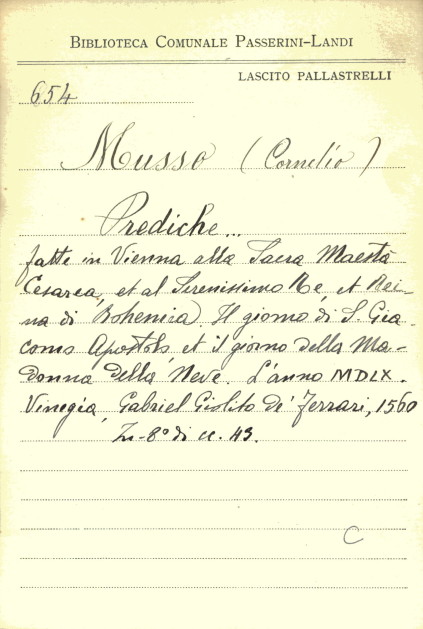 BIBLIOTECA COMUNALE PASSERINI-LANDI
LASCITO PALLASTRELLI
654
Musso (Cornelio)
Prediche...
fatte in Vienna alla Sacra Maestà
Cesarea, et al Serenissimo Re, et Rei-
na di Bohemia. Il giorno di S. Gia-
como Apostolo, et il giorno della Ma-
donna della Neve. L'anno MDLX.
Vinegia, Gabriel Giolito de' Ferrari, 1560
In-8º di cc. 43.
C